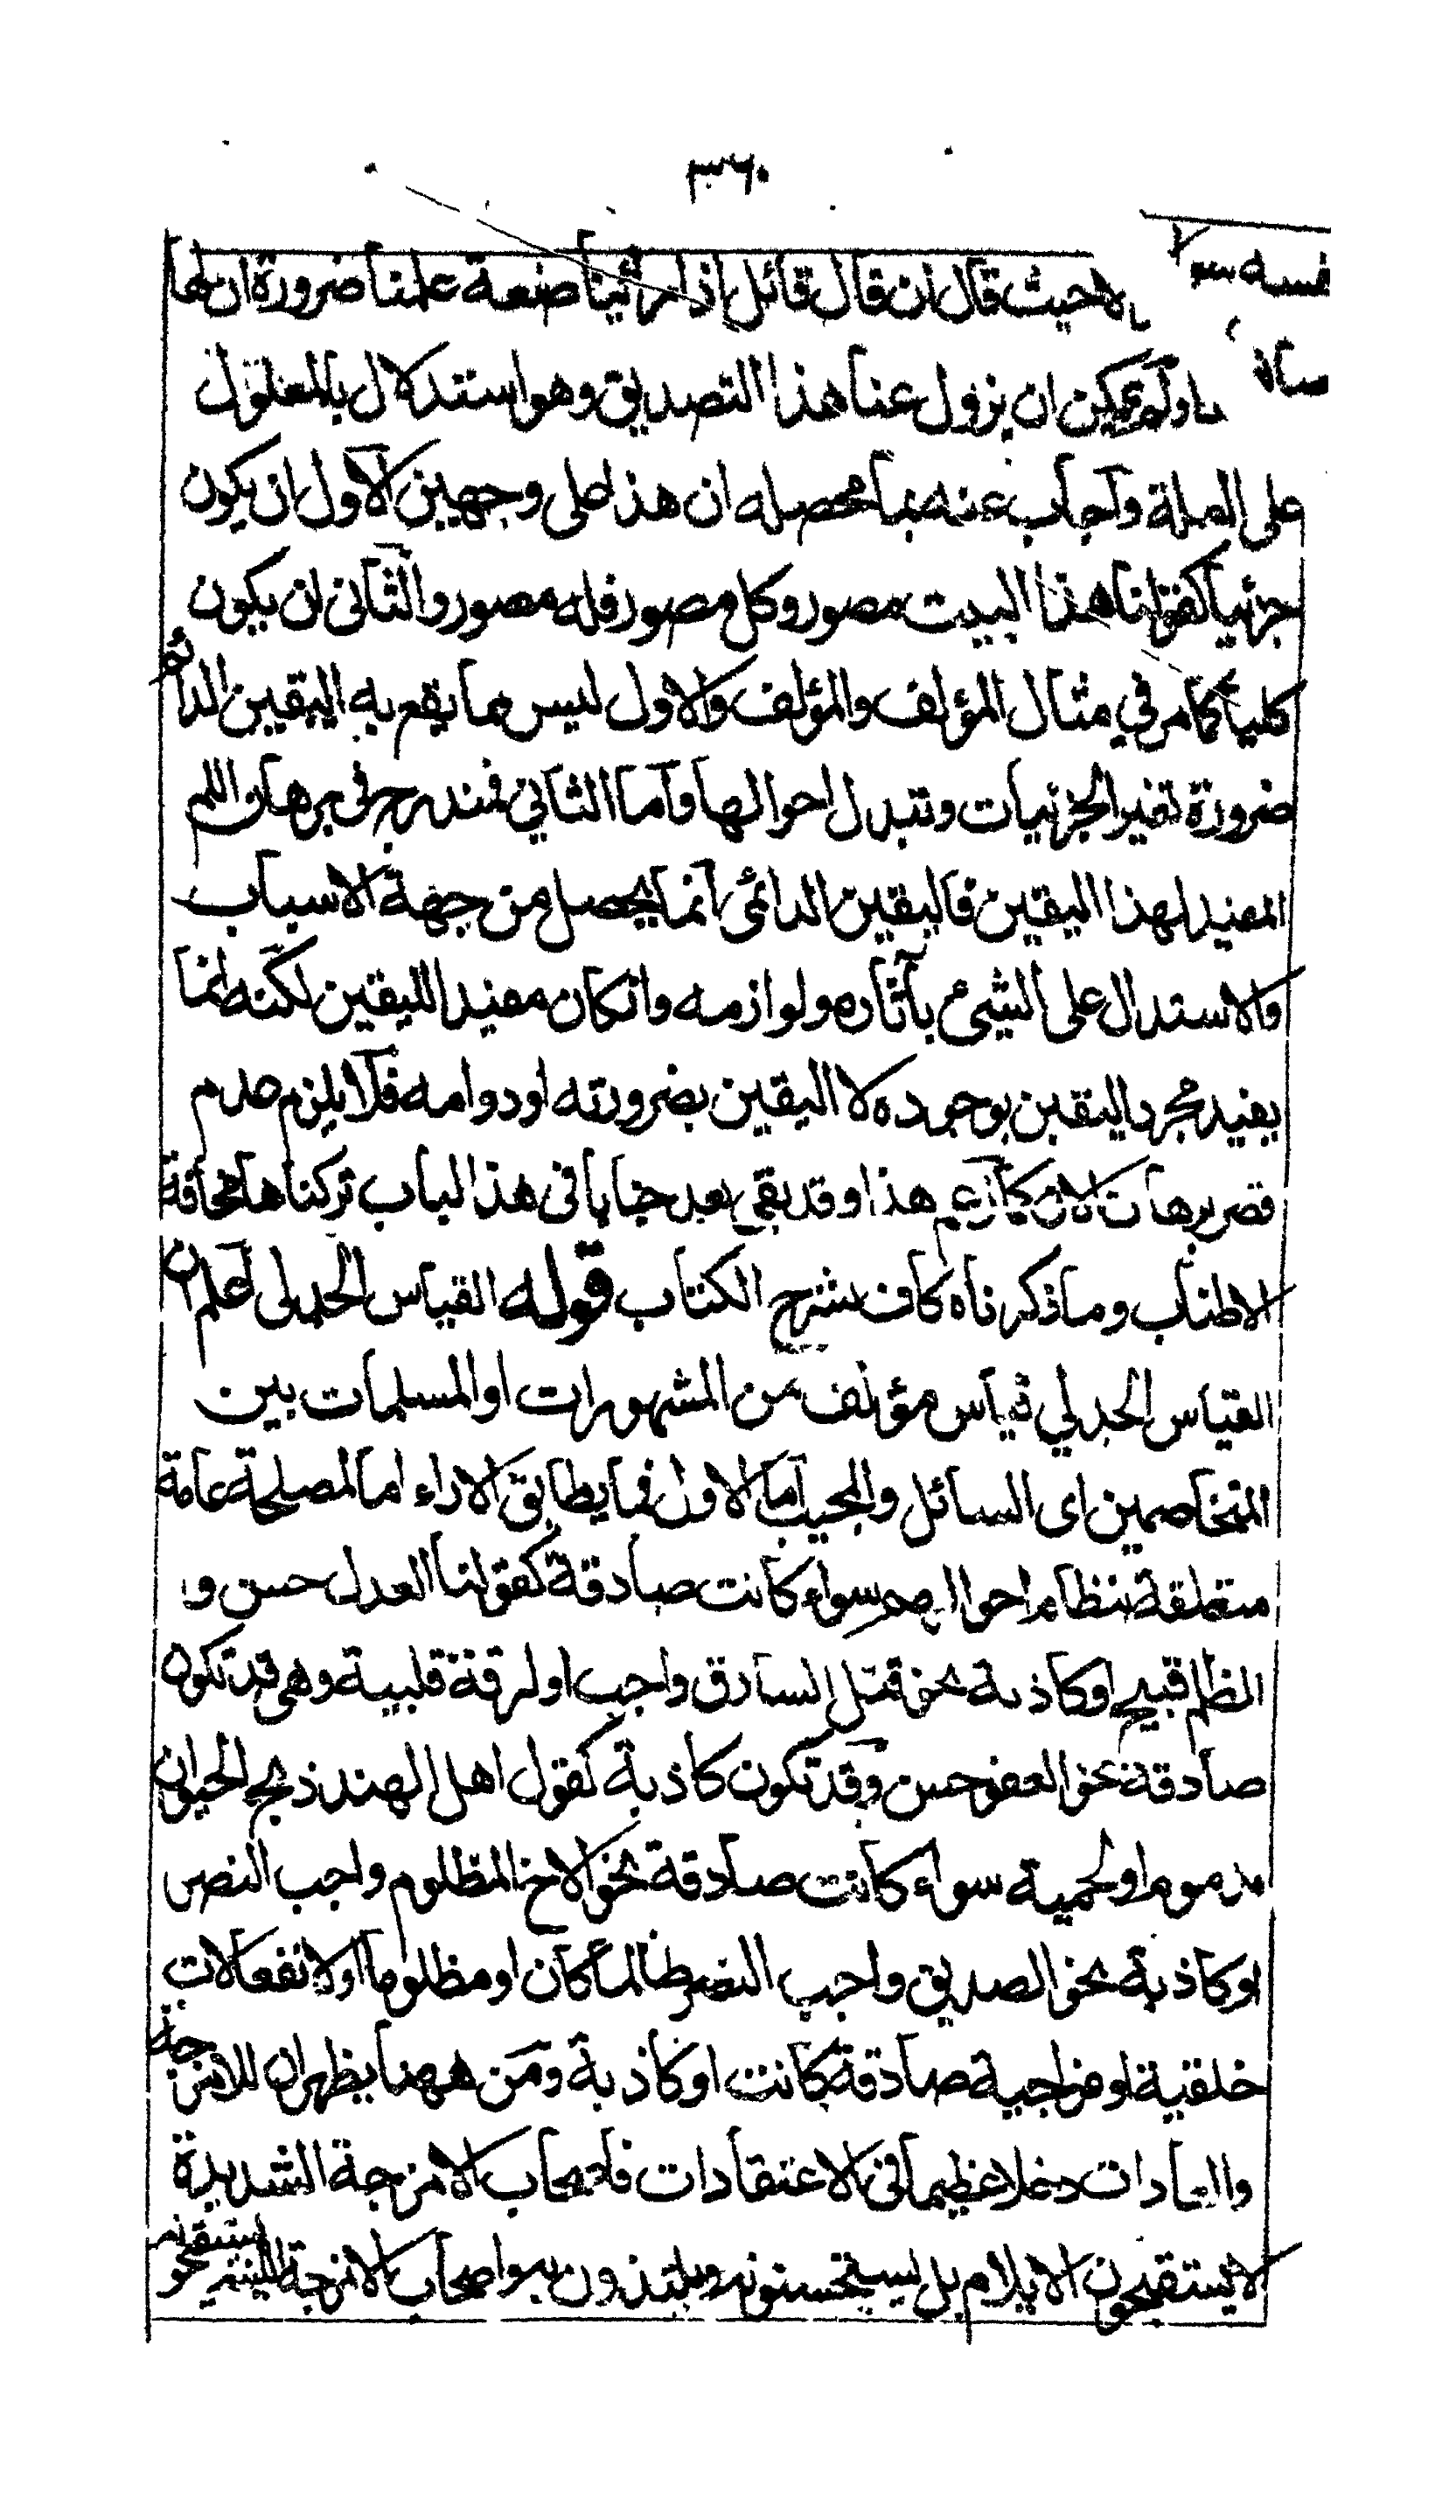 ٣٦٠
حيث قال ان قال قائل اذا رأينا صنعة علمنا ضرورة ان لها
ولم يمكن ان يزول عنا هذا التصديق وهو استدلال بالمعلول
على العلة وآجاب عنه بما محصله ان هذا على وجهين الآول ان يكون
جزئيا كقولنا هذا البيت مصور وكل مصور فله مصور والثانى ان يكون
كليا كما مر في مثال المؤلف والمؤلف والاول ليس مما يقع به اليقين الدائم
ضرورة تغير الجزئيات وتبدل احوالها وآما الثاني فمندرج فى برهان اللم
المفيد لهذا اليقين فاليقين الدائمى آنما يحصل من جهة الاسباب
والاستدلال على الشيء بآثاره ولوازمه وانكان مفيدا لليقين لكنه انما
يفيد مجرد اليقين بوجوده لا اليقين بضرورته او دوامه فلا يلزم عدم
قصر برهان الان كما زعم هذا وقد بقى بعد خبايا فى هذا الباب تركناها مخافة
الاطناب وما ذكرناه كاف لشرح الكتاب قوله القياس الجدلى آعلم ان
القياس الجدلي قياس مؤلف من المشهورات او المسلمات بين
المتخاصمين اى السائل والمجيب آما الاول فما يطابق الاراء اما لمصلحة عامة
متعلقة بنظام احوالهم سواء كانت صادقة كقولنا العدل حسن و
الظلم قبيح او كاذبة نحو قتل السارق واجب او لرقة قلبية وهى قد تكون
صادقة نحو العفو حسن وقد تكون كاذبة كقول اهل الهند ذبح الحيوان
مذموم او لحمية سواء كانت صادقة نحو الاخ المظلوم واجب النصر
او كاذبة نحو الصديق واجب النصر ظالما كان او مظلوما او لانفعالات
خلقية او مزاجية صادقة كانت او كاذبة ومن ههنا يظهر ان للامزجة
والعادات دخلا عظيما فى الاعتقادات فاصحاب الامزجة الشديدة
لا يستقبحون الايلام بل يستحسنونه ويلتذون به واصحاب الامزجة اللينة يستقبحونه